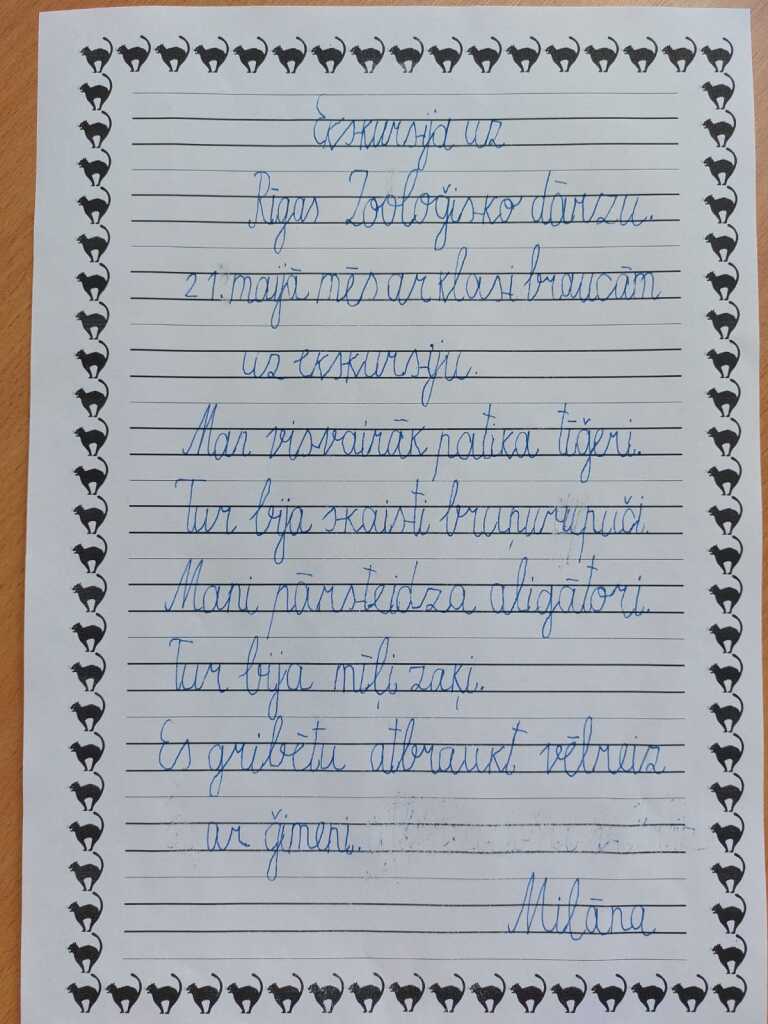 Ekskursija uz
Rīgas Zooloģisko dārzu.
21. majā mēs ar klasi braucām
uz ekskursiju.
Man visvairāk patika tīģeri.
Tur bija skaisti bruņurupuči.
Mani pārsteidza aligātori.
Tur bija mīļi zaķi.
Es gribētu atbraukt vēlreiz
ar ģimeni.
Milāna